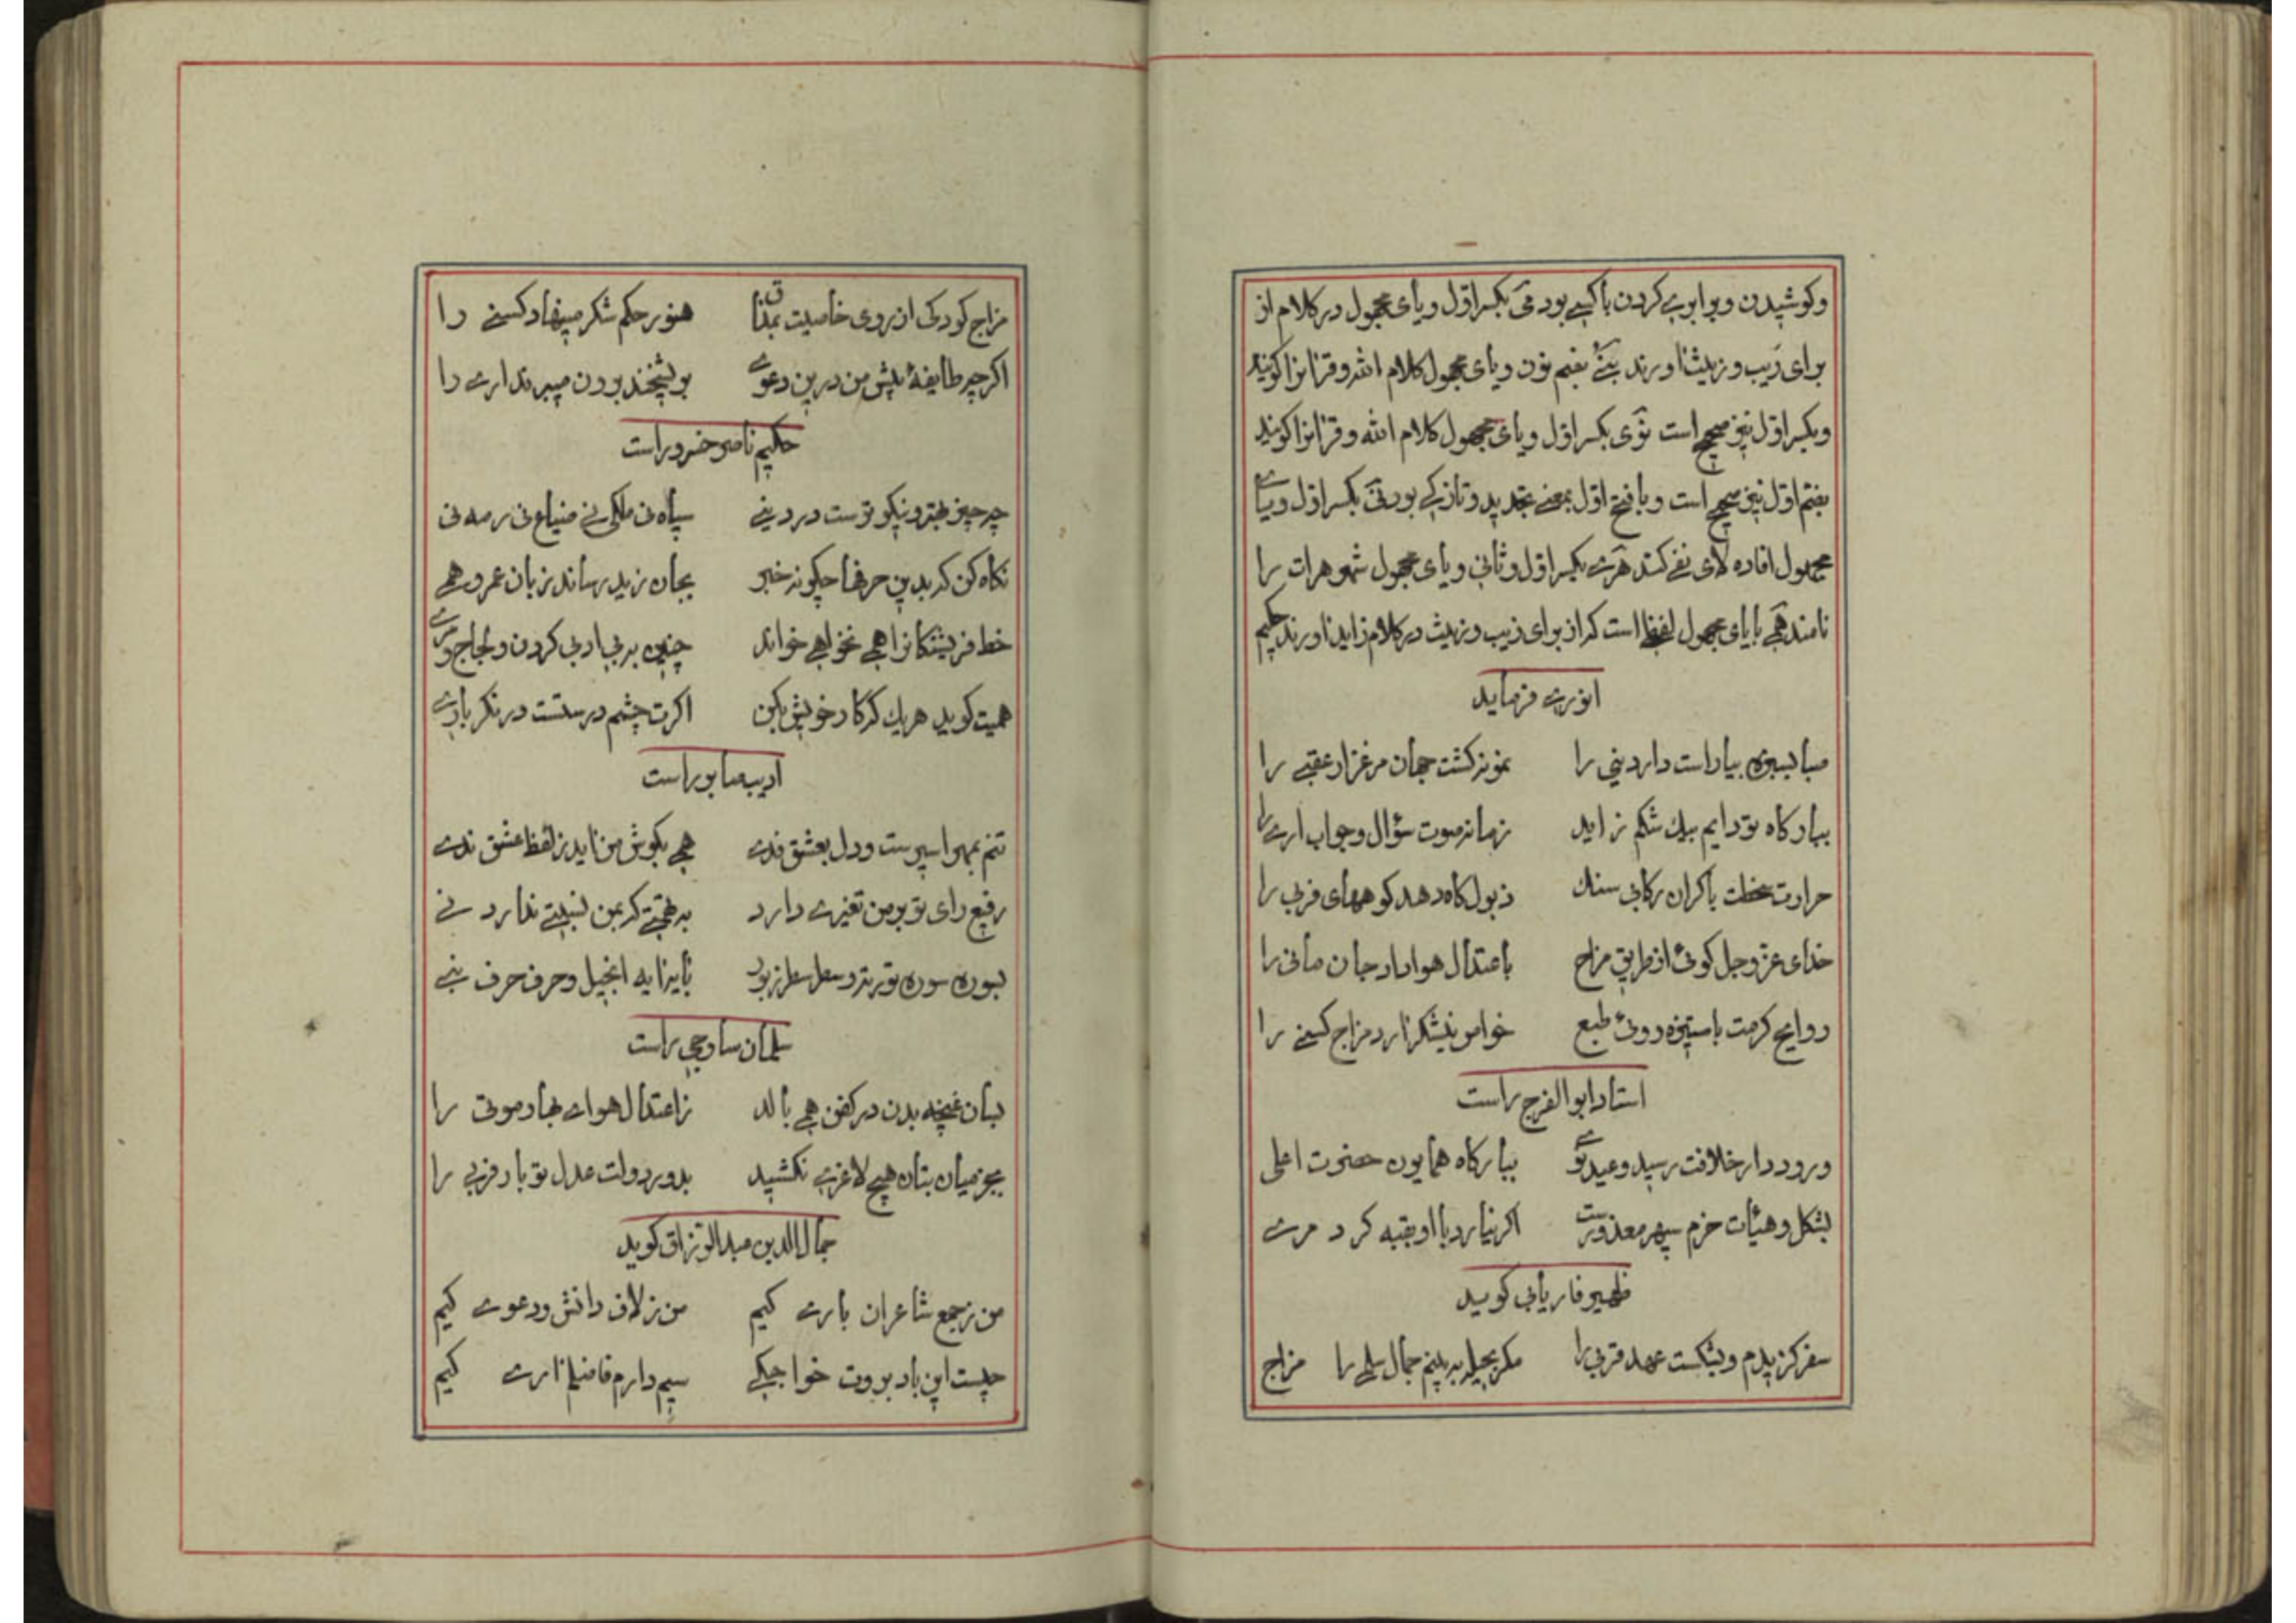 وکوشیدن وبرابری کردن باکسی بود می بکسر اوّل ویای مجهول در کلام از
برای زیب وزینت اورند نبی بضم نون ویای مجهول کلام الله وقرانرا کویند
وبکسر اوّل نیز صحیح است نوی بکسر اوّل ویای مجهول کلام الله وقرانرا کویند
بضم اوّل نیز صحیح است وبا فتح اوّل بمعنی تجدید وتازکی بود نی بکسر اوّل ویای
مجهول افاده لای نفی کند هری بکسر اوّل وثانی ویای مجهول شهر هرات را
نامند همی بایای مجهول لفظ است که از برای زیب وزینت در کلام زاید اورند حکیم
انوری فرماید
صبا بسبزه بیاراست دار دنیی را نمونه کشت جهان مرغزار عقبی را
ببارکاه تو دایم بیك شکم زاید زمانه صوت سؤال وجواب اری را
حرارت سخطت باکران رکابی سنك ذبول کاه دهد کوههای فربی را
خدای عز وجل کوئی از طریق مزاج باعتدال هوا داد جان مانی را
روایح کرمت باستیزه روئی طبع خواص نیشکر ارد مزاج کسنی را
استاد ابو الفرج راست
ورود دار خلافت رسید وعید نوی ببارکاه همایون حضرت اعلی
بشکل وهیأت حزم سپهر معذورست اکر نیارد با او بقبه کرد مری
ظهیر فاریابی کوید
سفر کزیدم وبشکست عهد قربی را مکر بحیله ببینم جمال سلمی را مزاج
مزاج کودکی از روی خاصیت بمذاق هنوز حکم شکر مینهاد کسنی را
اکر چه طایفهٔ پیش من درین دعوی بریشخند برون میبرند اری را
حکیم ناصر خسرو راست
چه چیز بهتر ونیکوترست در دنیی سپاه نی ملکی نی ضیاع نی رمه نی
نکاه کن که بدین حرفها چکونه خبر بجان زید رساند زبان عمرو همی
خط فریشتکانرا همی نخواهی خواند چنین به بی ادبی کردن ولجاج ومری
همیت کوید هریك که کار خویش بکن اکرت چشم درستست در نکر باری
ادیب صابر راست
تنم بمهر اسیرست ودل بعشق فدی همی بکوش من اید ز لفظ عشق ندی
رفیع رای تو بر من تغیری دارد به تهمتی که بمن نسبتی ندارد نی
بسوره سوره توریة وسطر سطر زبور بآیه ایه انجیل وحرف حرف نبی
سلمان ساوجی راست
بسان غنچه بدن در کفن همی بالد ز اعتدال هوای بهار موتی را
بجز میان بتان هیچ لاغری نکشید بدور دولت عدل تو بار فربی را
جمال الدین عبد الرزاق کوید
من ز جمع شاعران باری کیم من ز لاف دانش ودعوی کیم
چیست این باد بروت خواجکی سیم دارم فاضلم اری کیم